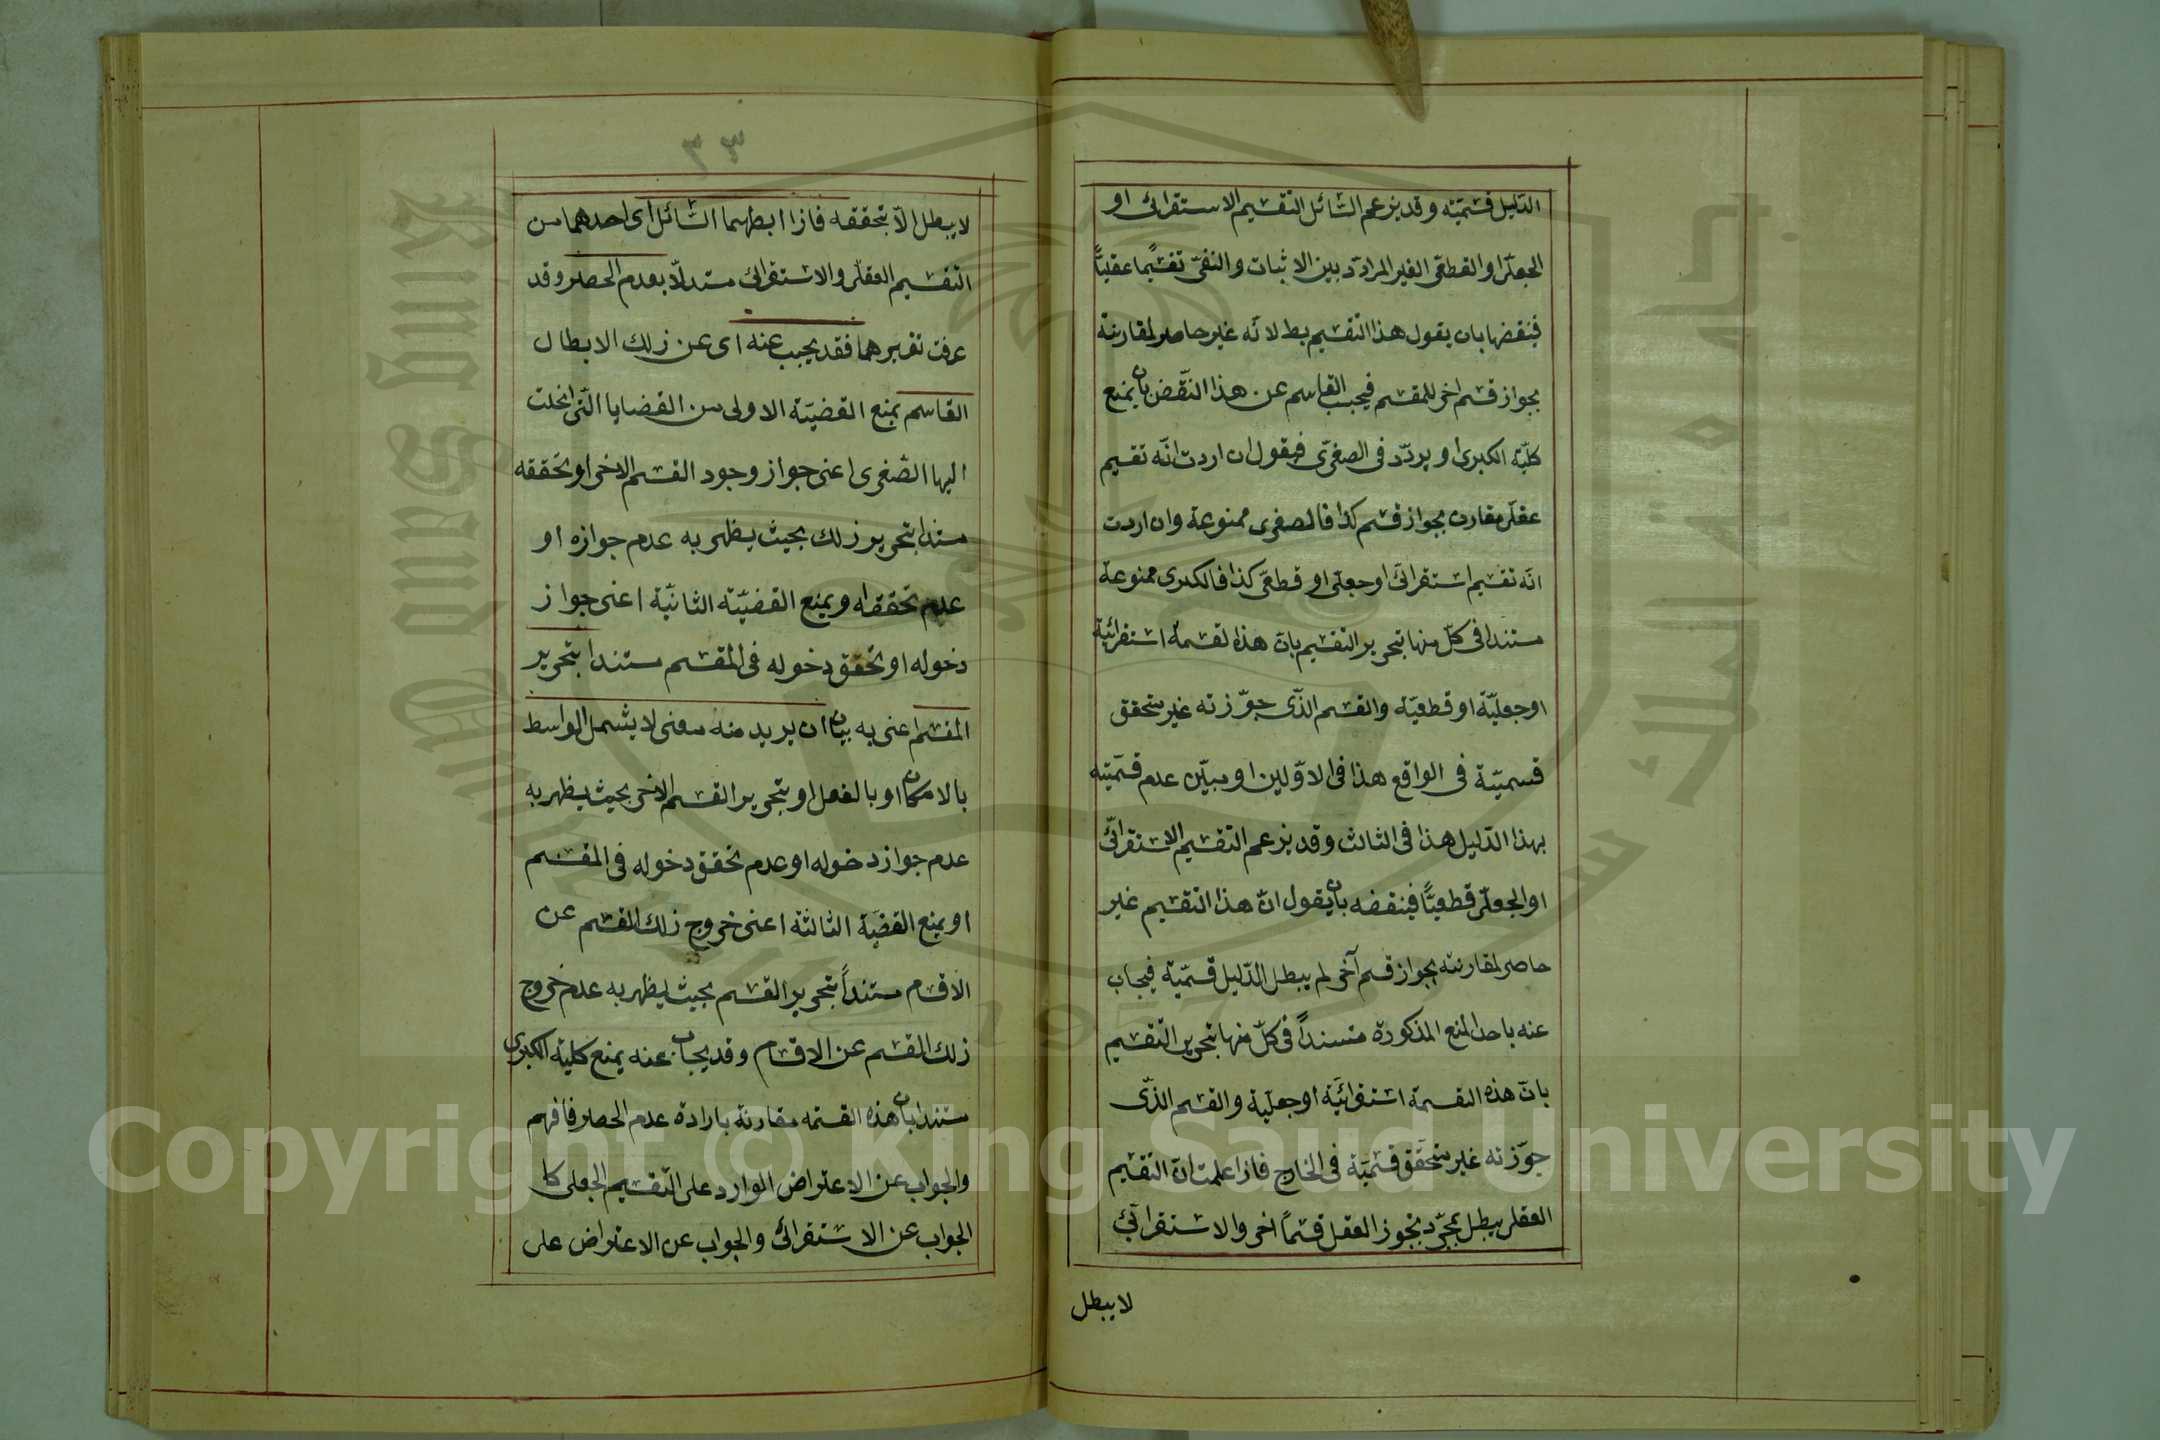 الدّليل قسميّته وقد يزعم السّائل التقسيم الاستقرائى او
الجعلىّ او القطعى الغير المرادّد بين الاثبات والنفىّ تقسيمًا عقليًّا
فينقضها بان يقول هذا التقسيم بط لانّه غير حاصر لمقارنته
بجواز قسم اخر للمقسم فيجيب القاسم عن هذا النّقض بان يمنع
كليّة الكبرى او يردّد فى الصغرّى فيقول ان اردت انّه تقسيم
عقلّى مقارن بجواز قسم كذا فالصغرى ممنوعة وان اردت
انّه تقسيم استقرائى او جعلى او قطعى كذا فالكبرى ممنوعة
مستندا فى كلّ منها بتحرير التقسيم بانّ هذه القسمة استقرائية
او جعليّة او قطعيّة والقسم الذّى جوّزته غير متحقق
قسميّة فى الواقع هذا فى الاوّلين او مبيّن عدم قسميّته
بهذا الدّليل هذا فى الثالث وقد يزعم التقسيم الاستقرائّى
او الجعلىّ قطعيًّا فينقضه بان يقول انّ هذا التقسيم غير
حاصر لمقارنته بجواز قسم آخر لم يبطل الدّليل قسميّته فيجاب
عنه باحد المنع المذكورة مستنداً فى كلّ منها بتحرير التقسيم
بانّ هذه القسمة استقرائيّة او جعليّة والقسم الذّى
جوّزته غير متحقق قسميّة فى الخارج فاذا علمت انّ التقسيم
العقلى يبطل بمجرّد تجوز العقل قسمًا اخر والاستقرائى
لا يبطل
٣٣
لا يبطل الاّ بتحققه فاذا ابطلهما السّائل اى احدهما من
التقسيم العقلى والاستقرائى مستدلّا بعدم الحصر وقد
عرفت تقريرهما فقد يجيب عنه اى عن ذلك الابطال
القاسم بمنع القضيّة الاولى من القضايا التّى انحلت
اليها الصّغرى اعنى جواز وجود القسم الاخر او تحققه
مستندا بتحرير ذلك بحيث يظهر به عدم جوازه او
عدم تحققه او يمنع القضيّة الثانيّة اعنى جواز
دخوله او تحقق دخوله فى المقسم مستندا بتحرير
المقسم اعنى به بيان ان يريد منه معنى لا يشمل الواسط
بالامكان او بالفعل او بتحرير القسم الاخر بحيث يظهر به
عدم جواز دخوله او عدم تحقق دخوله فى المقسم
او يمنع القضيّة الثالثة اعنى خروج ذلك القسم عن
الاقسام مستنداً بتحرير القسم بحيث يظهر به عدم خروج
ذلك القسم عن الاقسام وقد يجاب عنه بمنع كلية الكبرى
مستندا بان هذه القسمه مقارنة بارادة عدم الحصر فافهم
والجواب عن الاعتراض الوارد على التقسيم الجعلى كا
الجواب عن الاستقرائى والجواب عن الاعتراض على
Copyright © King Saud University